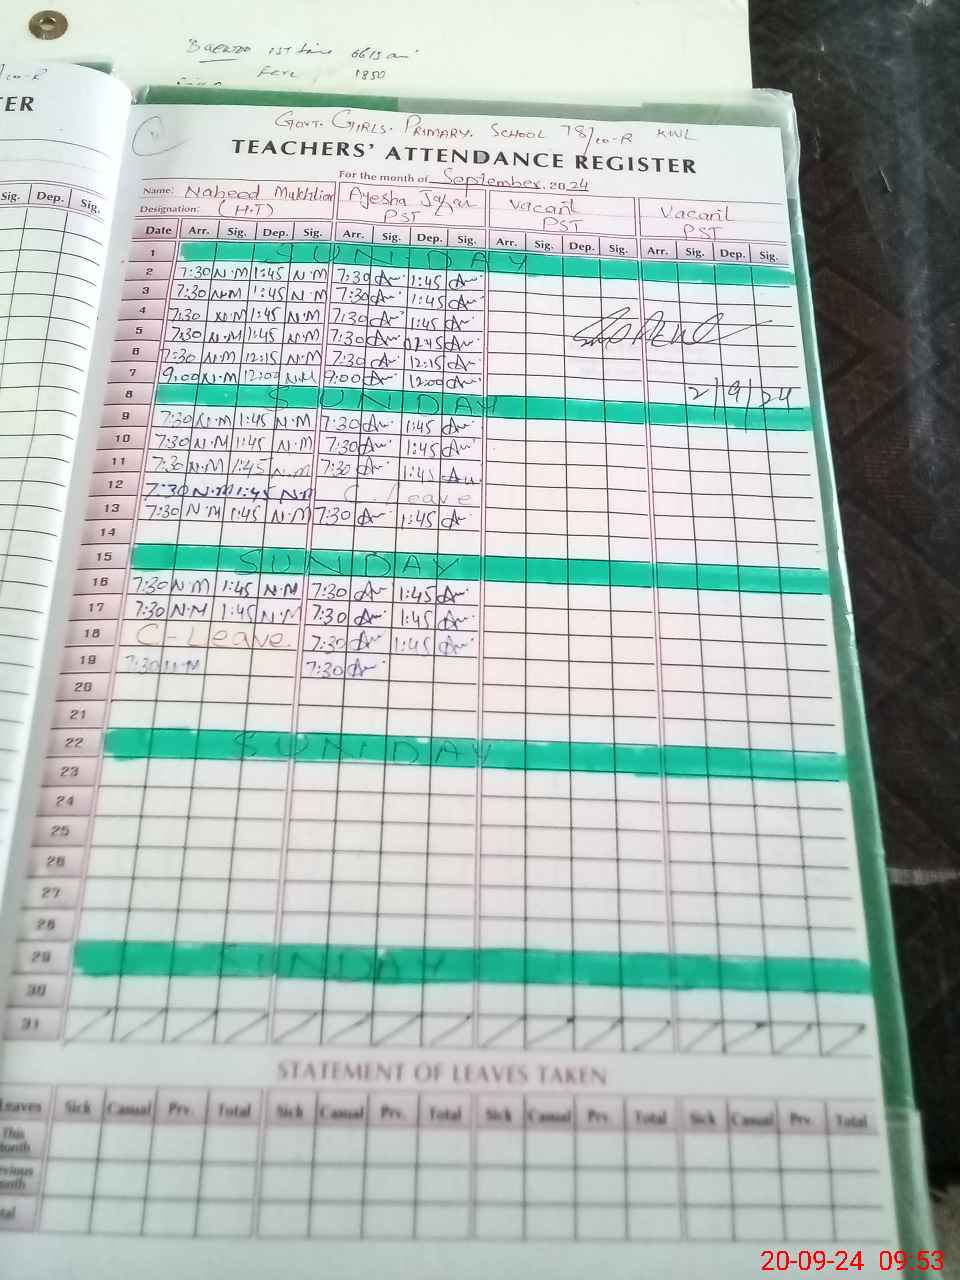 1ST time 6615 am
Fare 1850
ER
GOVT. GIRLS. PRIMARY. SCHOOL 78/10-R KWL
TEACHERS' ATTENDANCE REGISTER
For the month of September. 2024
Name: Naheed Mukhtiar Ayesha Vacant Vacant
Designation: (H.T) PST PST PST
Sig. Dep. Sig. Date Arr. Sig. Dep. Sig. Arr. Sig. Dep. Sig. Arr. Sig. Dep. Sig. Arr. Sig. Dep. Sig.
1 SUNDAY
2 7:30 N.M 1:45 N.M 7:30 1:45
3 7:30 N.M 1:45 N.M 7:30 1:45
4 7:30 N.M 1:45 N.M 7:30 1:45
5 7:30 N.M 1:45 N.M 7:30 1:45
6 7:30 N.M 12:15 N.M 7:30 12:15
7 9:00 N.M 12:00 N.M 9:00 12:00
2/9/24
8 SUNDAY
9 7:30 N.M 1:45 N.M 7:30 1:45
10 7:30 N.M 1:45 N.M 7:30 1:45
11 7:30 N.M 1:45 N.M 7:30 1:45
12 7:30 N.M 1:45 N.M C-Leave
13 7:30 N.M 1:45 N.M 7:30 1:45
14
15 SUNDAY
16 7:30 N.M 1:45 N.M 7:30 1:45
17 7:30 N.M 1:45 N.M 7:30 1:45
18 C-Leave. 7:30 1:45
19 7:30 N.M 7:30
20
21
22 SUNDAY
23
24
25
26
27
28
29 SUNDAY
30
31
STATEMENT OF LEAVES TAKEN
Leaves Sick Casual Prv. Total Sick Casual Prv. Total Sick Casual Prv. Total Sick Casual Prv. Total
This
onth
vious
onth
tal
20-09-24 09:53